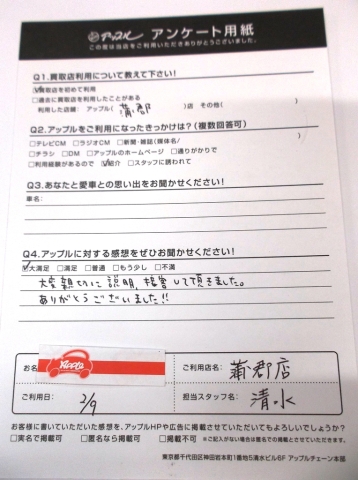 アップル アンケート用紙
この度は当店をご利用いただきありがとうございました。
Q1.買取店利用について教えて下さい!
☑買取店を初めて利用
□過去に買取店を利用したことがある
利用した店舗: アップル( 蒲郡 )店 その他( )
Q2.アップルをご利用になったきっかけは?(複数回答可)
□テレビCM □ラジオCM □新聞・雑誌(媒体名/ )
□チラシ □DM □アップルのホームページ □通りがかりで
□利用経験があるので ☑紹介 □スタッフに誘われて
Q3.あなたと愛車との思い出をお聞かせください!
車名:
Q4.アップルに対する感想をぜひお聞かせください!
☑大満足 □満足 □普通 □もう少し □不満
大変親切に説明、接客して頂きました。
ありがとうございました!!
お名 Apple
ご利用店名: 蒲郡店
ご利用日: 2/9
担当スタッフ名: 清水
お客様に書いていただいた感想を、アップルHPや広告に掲載させていただいてもよろしいでしょうか?
□実名で掲載可 □匿名なら掲載可 □掲載不可 ※ご記入がない場合は匿名での掲載とさせていただきます。
東京都千代田区神田岩本町1番地5清水ビル6F アップルチェーン本部